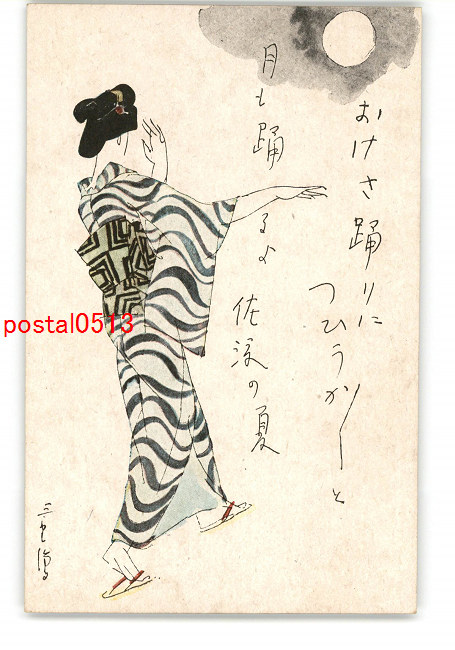 おけさ踊りに
つひうか〳〵と
月も踊
るよ
佐渡の夏
postal0513